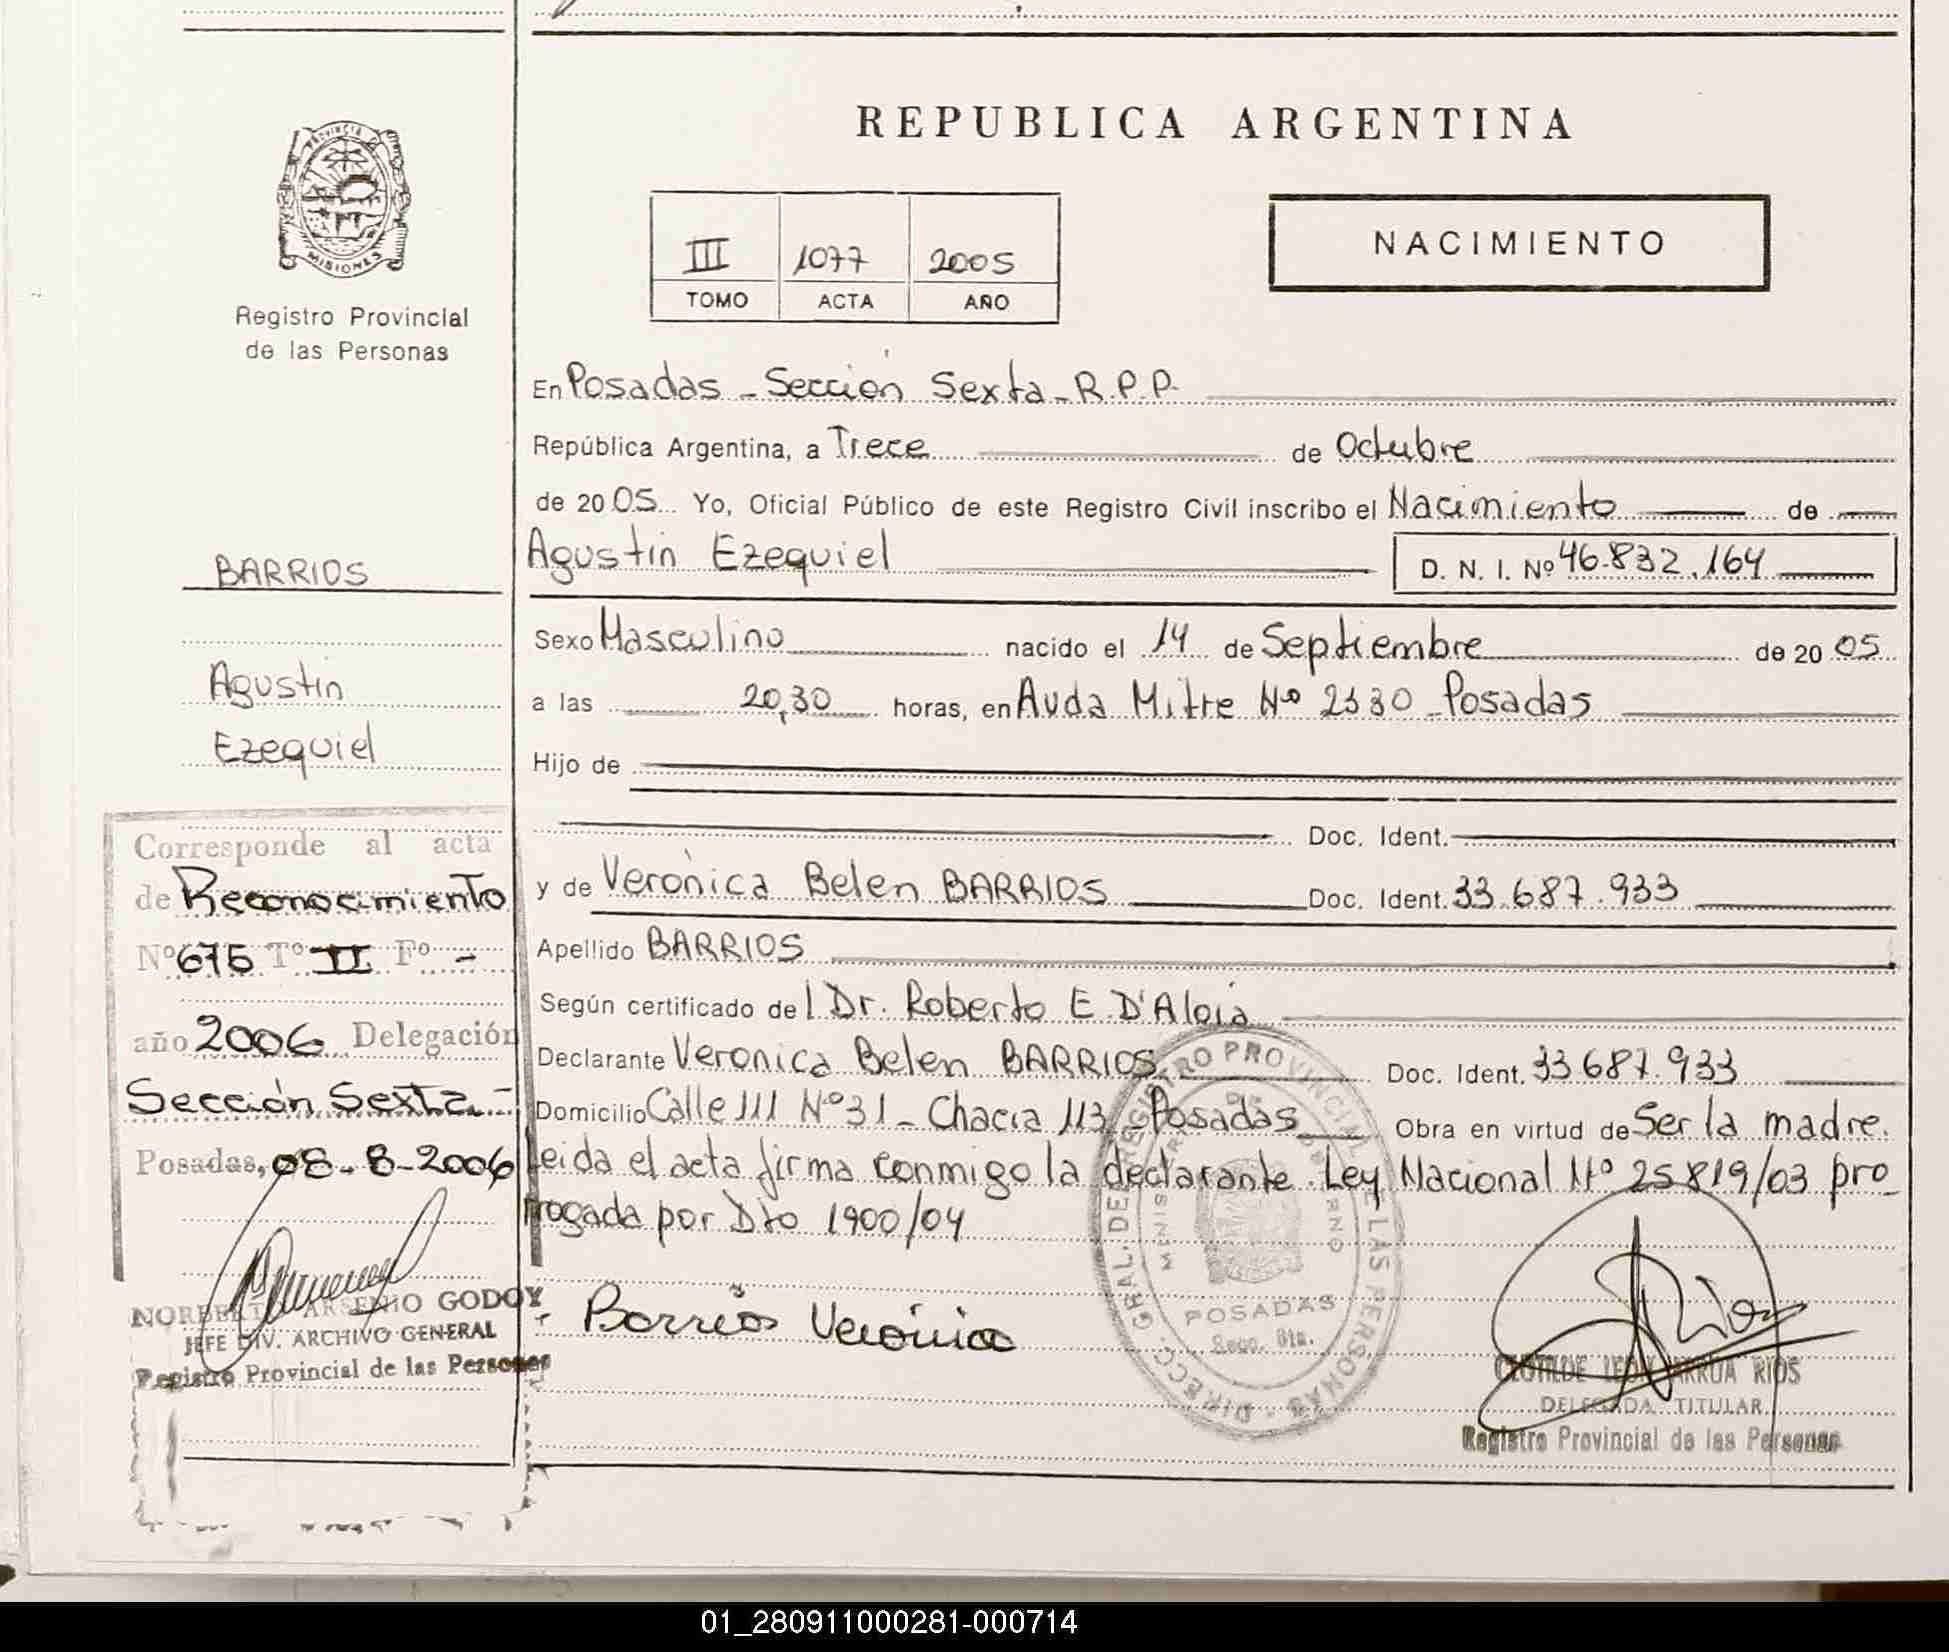 REPUBLICA ARGENTINA
PROVINCIA DE
MISIONES
Registro Provincial
de las Personas
III 1077 2005
TOMO ACTA AÑO
NACIMIENTO
En Posadas - Sección Sexta - R.P.P.
República Argentina, a Trece de Octubre
de 2005 Yo, Oficial Público de este Registro Civil inscribo el Nacimiento de
Agustin Ezequiel D. N. I. Nº 46.832.164
Sexo Masculino nacido el 14 de Septiembre de 2005
a las 20,30 horas, en Avda Mitre Nº 2330 Posadas
Hijo de
Doc. Ident.
y de Verónica Belen BARRIOS Doc. Ident. 33.687.933
Apellido BARRIOS
Según certificado del Dr. Roberto E. D'Aloia
Declarante Veronica Belen BARRIOS Doc. Ident. 33687.933
Domicilio Calle 111 Nº 31 - Chacra 113 - Posadas Obra en virtud de Ser la madre.
Leida el acta firma conmigo la declarante. Ley Nacional Nº 25819/03 pro
rrogada por Dto 1900/04
Barrios Verónica
BARRIOS
Agustin
Ezequiel
Corresponde al acta
de Reconocimiento
Nº 675 Tº II Fº -
año 2006 Delegación
Sección Sexta -
Posadas, 08-8-2006
NORBERTO ARSENIO GODOY
JEFE DIV. ARCHIVO GENERAL
Registro Provincial de las Personas
DIRECC. GRAL. DEL REGISTRO PROVINCIAL DE LAS PERSONAS
POSADAS
Secc. 6ta.
CLOTILDE ARRUA RIOS
DELEGADA TITULAR
Registro Provincial de las Personas
01_280911000281-000714